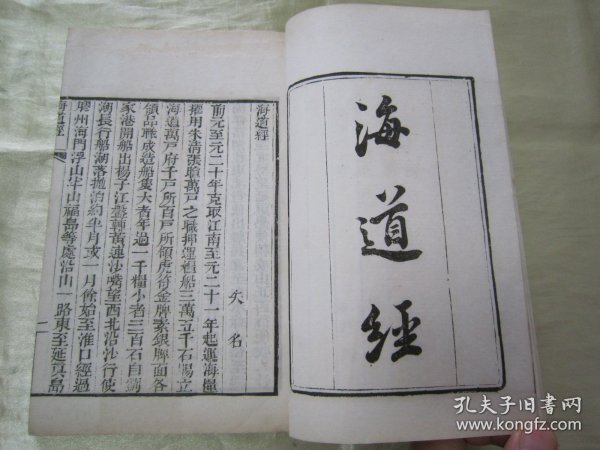 海道經
海道經
失名
前元至元二十年克取江南至元二十一年起運海糧
擢用朱清張瑄萬戶之職押運糧船三萬立千石賜立
海道萬戶府千戶所百戶所領虎符金牌素銀牌面各
領品職成造船隻大者年過一千糧小者三百石自劉
家港開船出楊子江盤轉黃連沙嘴望西北沿沙行使
潮長行船潮落拋泊約半月或一月餘始至淮口經過
膠州海門浮山牢山福島等處沿山一路東至延真島
海道經
一
孔夫子旧書网
www.kongfz.com